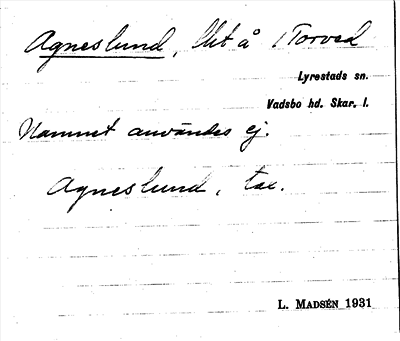 Agneslund, lht å 1 Torved
Lyrestads sn.
Vadsbo hd. Skar. l.
Namnet användes ej.
Agneslund, tax.
L. MADSÉN 1931